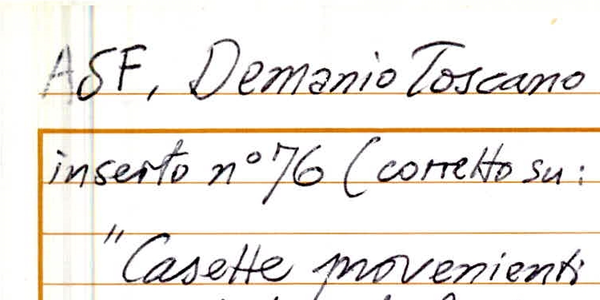 ASF, Demanio Toscano
inserto n° 76 (corretto su:
"Casette provenienti